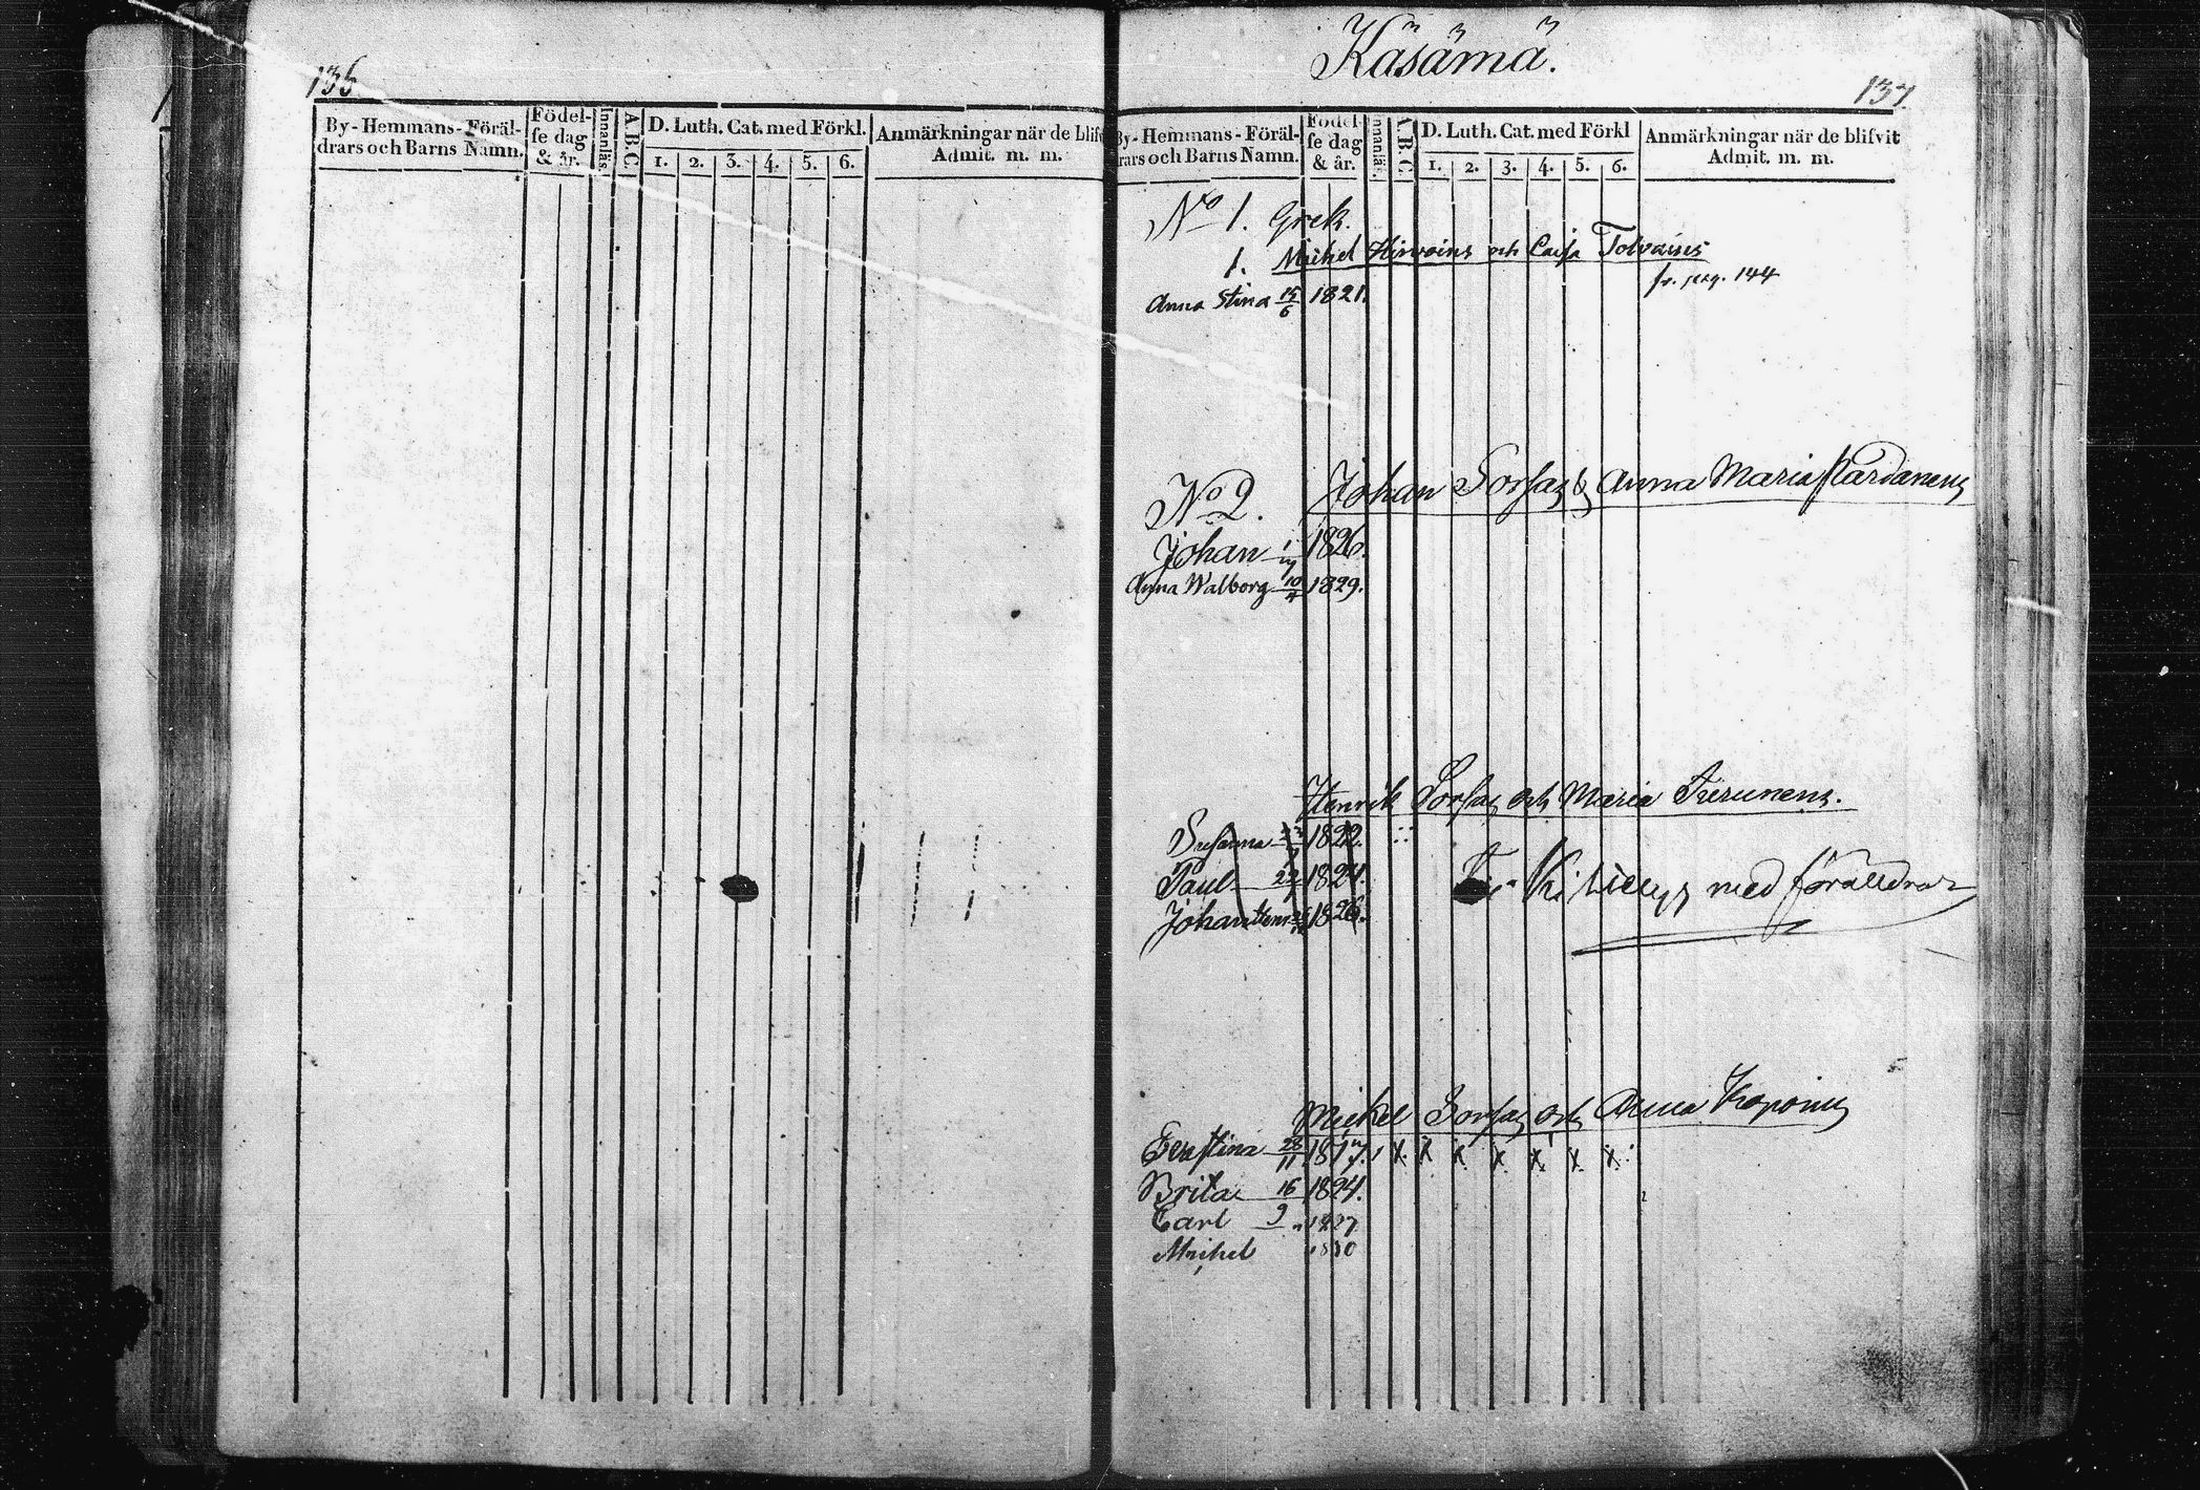 136
By-Hemmans-Föräl-
drars och Barns Namn.
Födel-
se dag
& år.
Innanläs.
A.B.C.
D. Luth. Cat. med Förkl.
1. 2. 3. 4. 5. 6.
Anmärkningar när de blifv
Admit. m. m.
Käsämä.
137.
By-Hemmans-Föräl-
rars och Barns Namn.
Födel-
se dag
& år.
Innanläs.
A.B.C
D. Luth. Cat. med Förkl
1. 2. 3. 4. 5. 6.
Anmärkningar när de blifvit
Admit. m. m.
No 1. Grek.
1. Michel Hirvoins och Caisa Tolvains
fr. pag. 144
Anna Stina 15/6 1821.
No 2. Johan Sorsas & Anna Maria
Johan 1826.
Anna Walborg 10/4 1829.
Henrik Sorsas och Maria Turunens.
Susanna 1822.
Paul 1824.
med föräldrar
Johan Hen 1826.
Michel Sorsas och Anna
28/11 1817. x x x x x x x
Brita 16 1824.
Carl 9 1827
Michel 1830